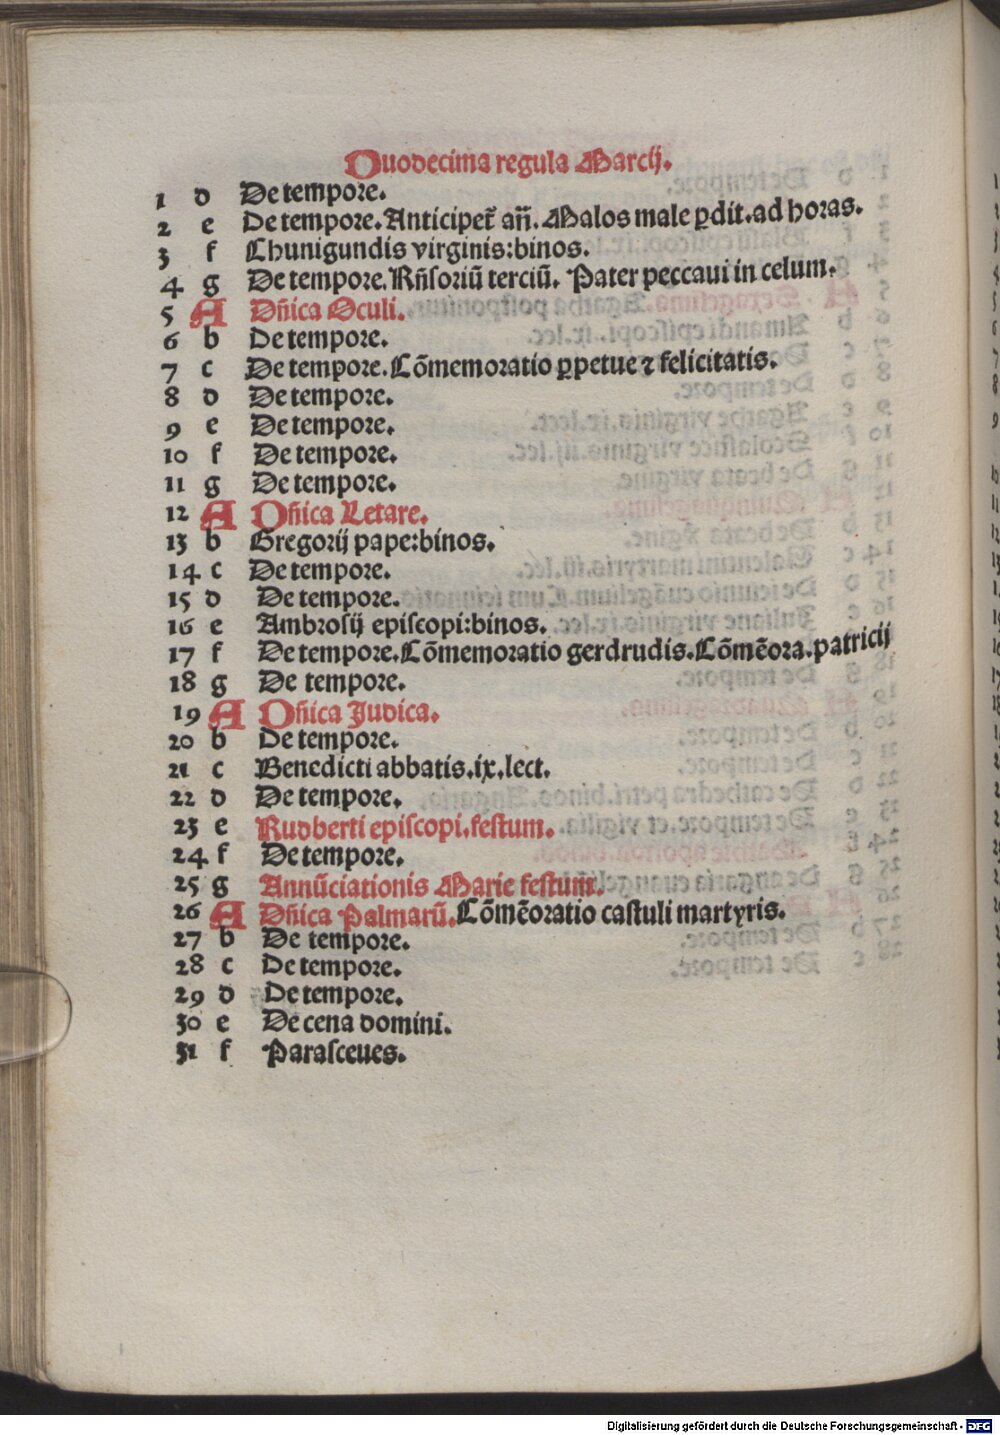 Duodecima regula Marcij.
1 d De tempore.
2 e De tempore. Anticipet᷑ añ. Malos male ꝑdit. ad horas.
3 f Chunigundis virginis: binos.
4 g De tempore. Rñsoriū terciū. Pater peccaui in celum.
5 A Dñica Oculi.
6 b De tempore.
7 c De tempore. Cōmemoratio ꝑpetue ⁊ felicitatis.
8 d De tempore.
9 e De tempore.
10 f De tempore.
11 g De tempore.
12 A Dñica Letare.
13 b Gregorij pape: binos.
14 c De tempore.
15 d De tempore.
16 e Ambrosij episcopi: binos.
17 f De tempore. Cōmemoratio gerdrudis. Cōmēora. patricij
18 g De tempore.
19 A Dñica Judica.
20 b De tempore.
21 c Benedicti abbatis. ix. lect.
22 d De tempore.
23 e Rudberti episcopi. festum.
24 f De tempore.
25 g Annūciationis Marie festum.
26 A Dñica Palmarū. Cōmēoratio castuli martyris.
27 b De tempore.
28 c De tempore.
29 d De tempore.
30 e De cena domini.
31 f Parasceues.
Digitalisierung gefördert durch die Deutsche Forschungsgemeinschaft - DFG